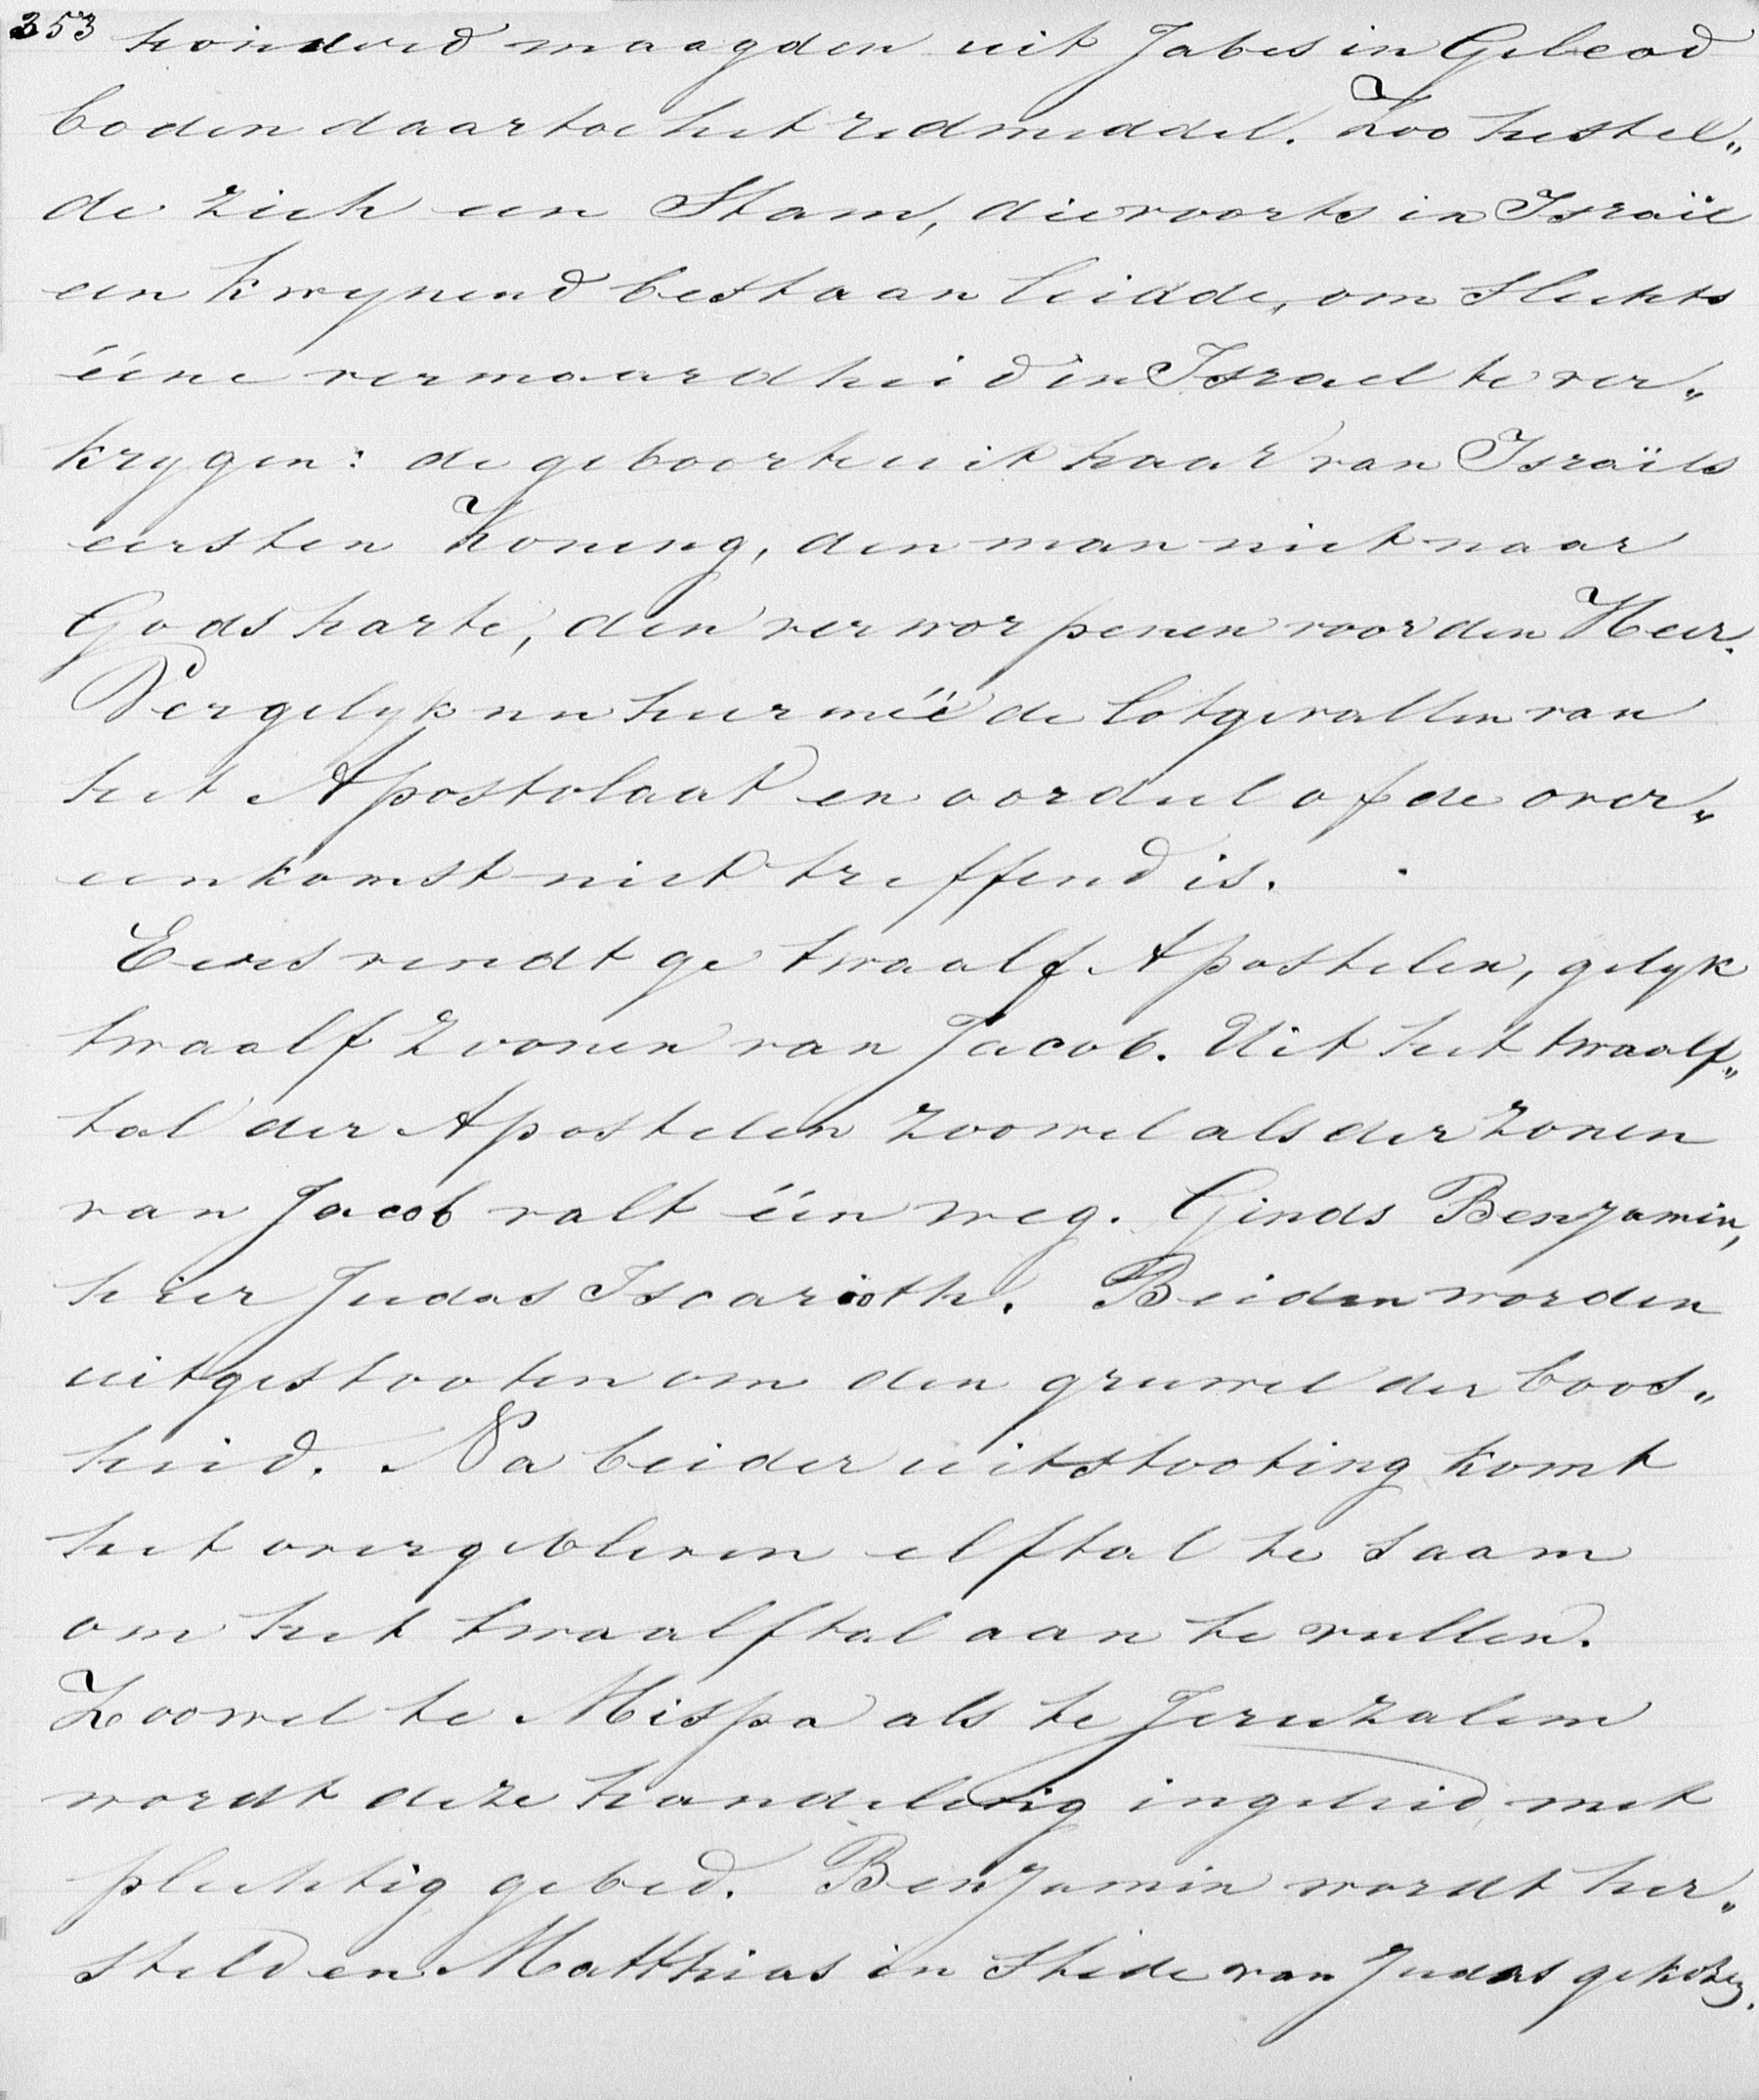 353 honderd maagden uit Jabes in Gilead
boden daartoe het redmiddel. Zoo herstel„
de zich een Stam, die voorts in Israël
een kwynend bestaan leidde, om slechts
ééne vermaardheid in Israel te ver„
krygen: de geboorte uit haar van Israëls
eersten Koning, den man niet naar
Gods harte, den verworpenen voor den Heer.
Vergelyk nu hiermeê de lotgevallen van
het Apostolaat en oordeel of de over„
eenkomst niet treffend is.
Eens vindt ge twaalf Apostelen, gelyk
twaalf zoonen van Jacob. Uit het twaalf„
tal der Apostelen zoowel als der zonen
van Jacob valt één weg. Ginds Benjamin,
hier Judas Iscarioth. Beiden worden
uitgestooten om den gruwel der boos„
heid. Na beider uitstooting komt
het overgebleven elftal te saam
om het twaalftal aan te vullen.
Zoowel te Mispa als te Jeruzalem
wordt deze handeling ingeleid met
plechtig gebed. Benjamin wordt her„
steld en Matthias in stede van Judas gekozen.